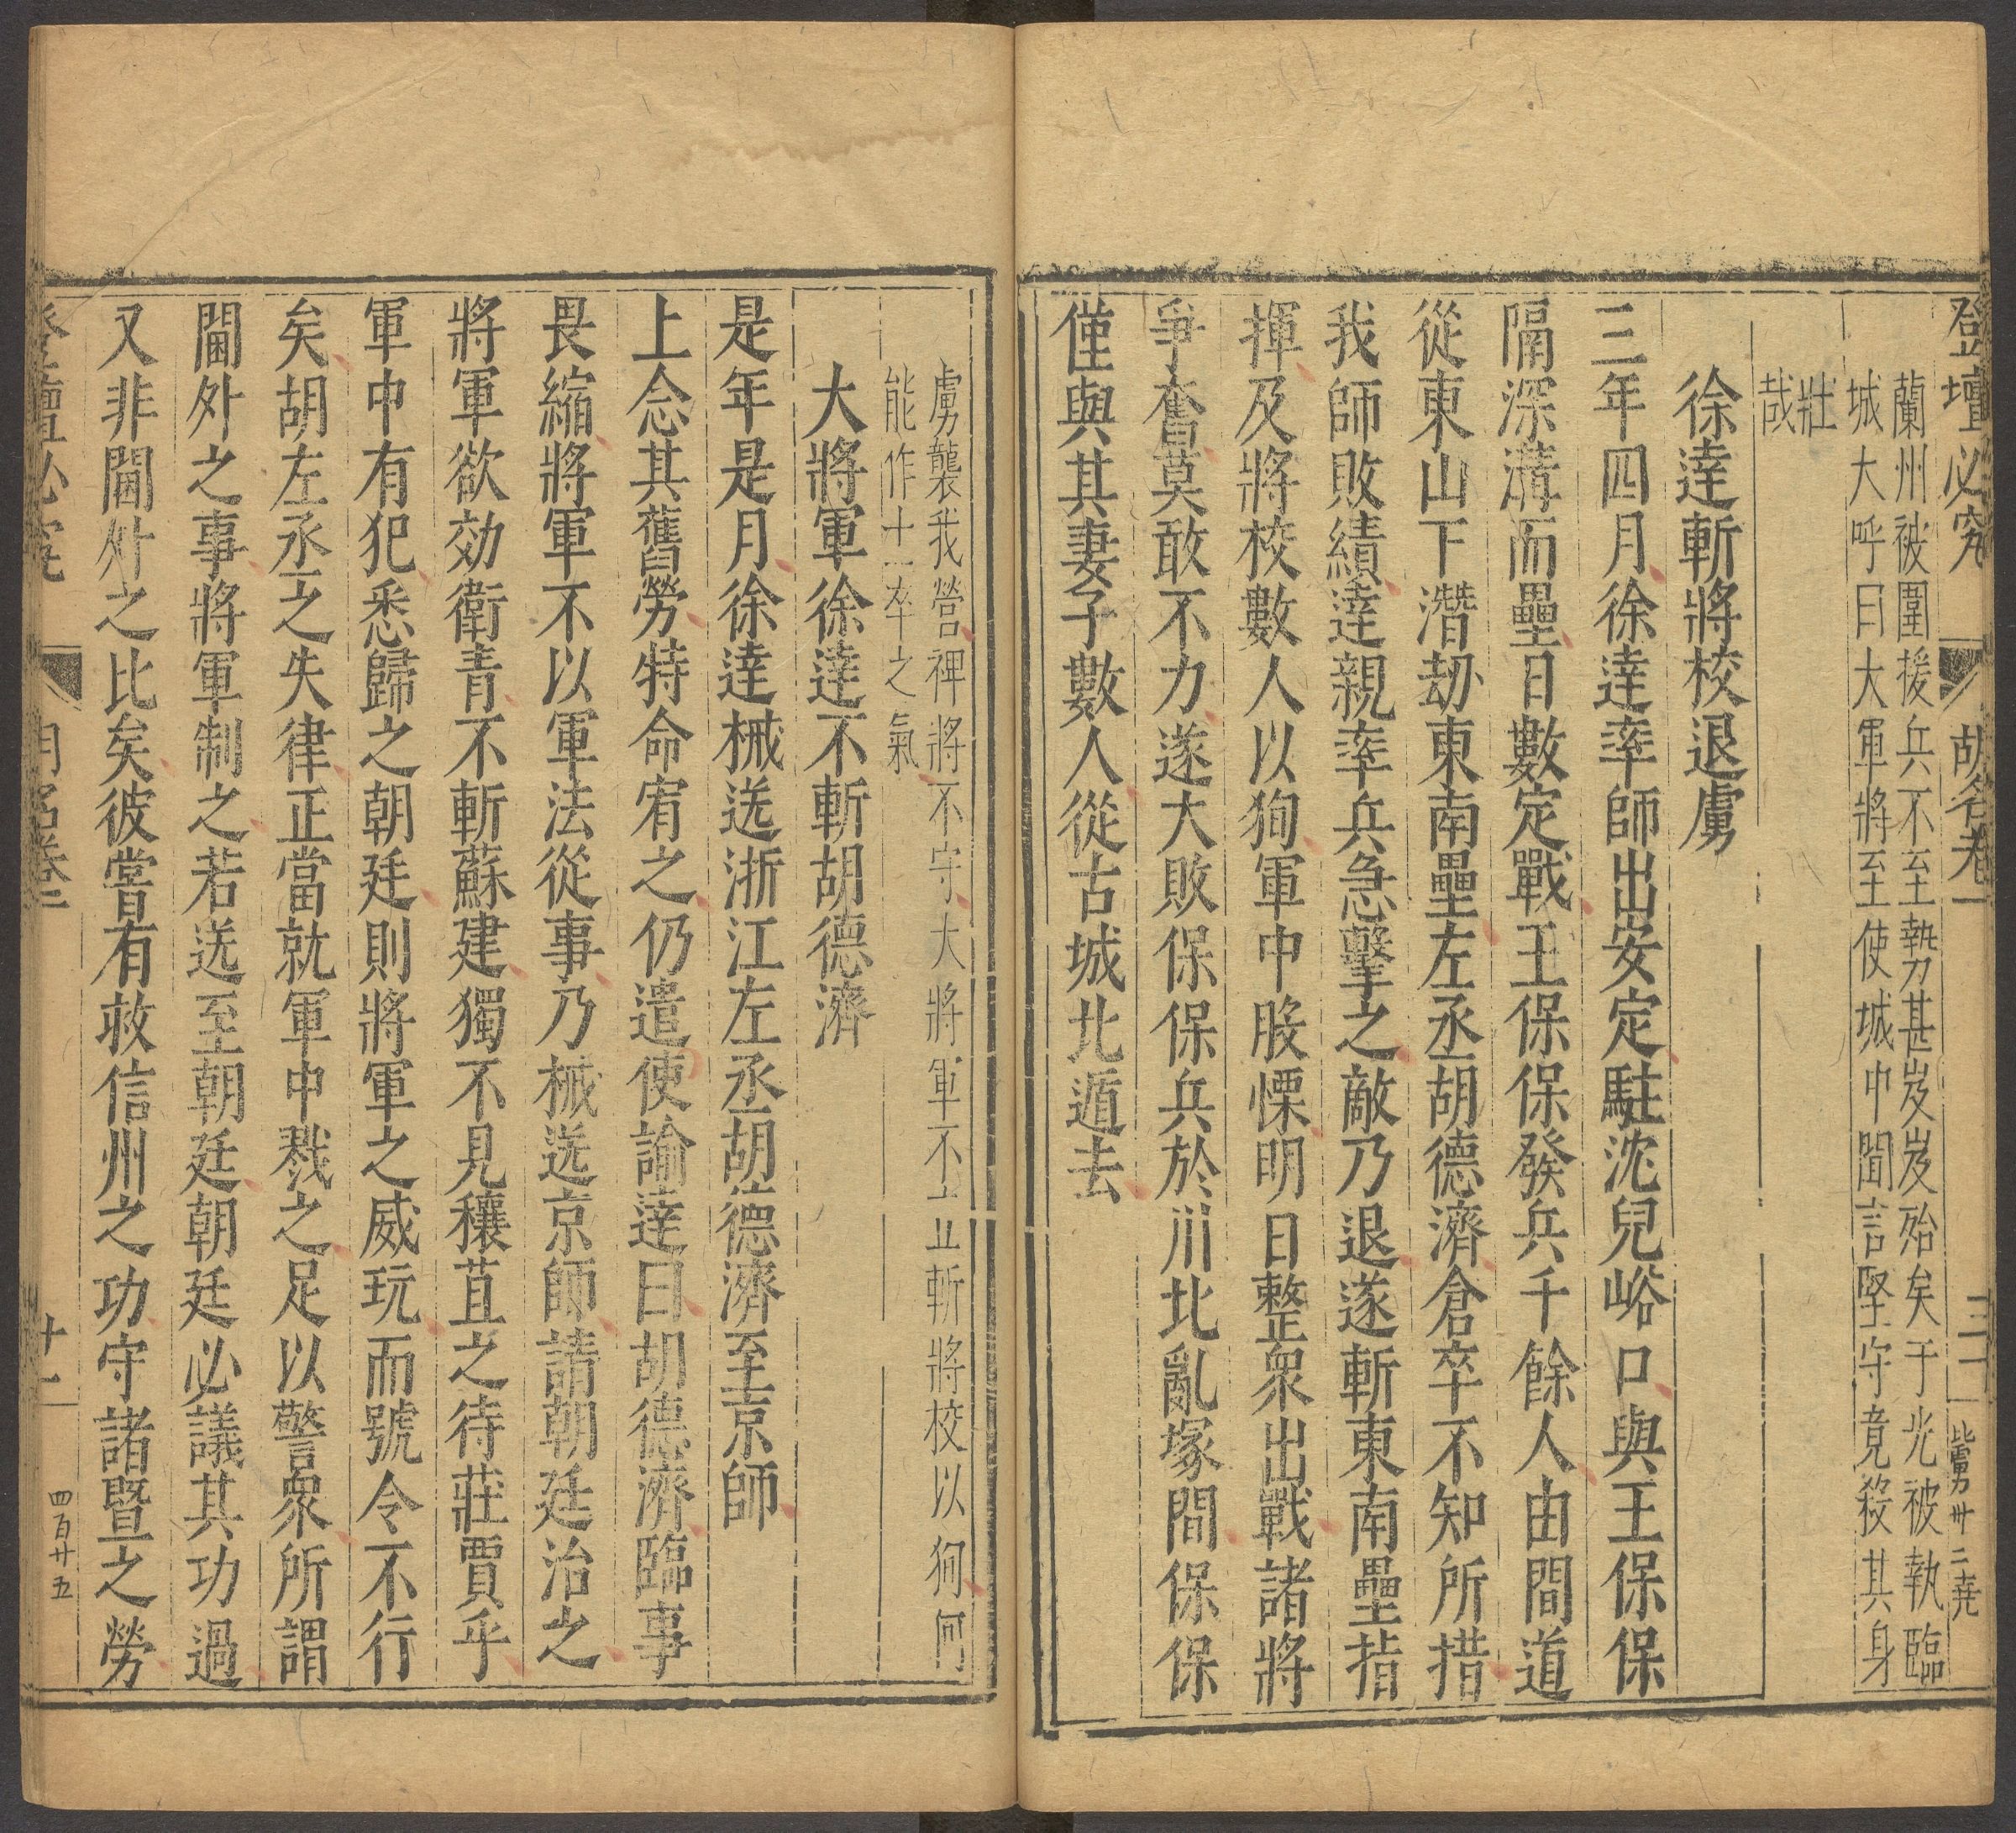 登壇必究
胡名卷一
三一
蘭州被圍援兵不至勢甚岌岌殆矣于光被執臨
城大呼曰大軍將至使城中聞言堅守竟殺其身
壯
哉
徐達斬將校退虜
三年四月徐達率師出安定駐沈兒峪口與王保保
隔深溝而壘日數定戰王保保發兵千餘人由間道
從東山下潛劫東南壘左丞胡德濟倉卒不知所措
我師敗績達親率兵急擊之敵乃退遂斬東南壘指
揮及將校數人以狥軍中股慄明日整衆出戰諸將
爭奮莫敢不力遂大敗保保兵於川北亂塚間保保
僅與其妻子數人從古城北遁去
虜襲我營裨將不守大將軍不斬將校以狥何
能作士卒之氣
大將軍徐達不斬胡德濟
是年是月徐達械送浙江左丞胡德濟至京師
上念其舊勞特命宥之仍遣使諭達曰胡德濟臨事
畏縮將軍不以軍法從事乃械送京師請朝廷治之
將軍欲効衛青不斬蘇建獨不見穰苴之待莊賈乎
軍中有犯悉歸之朝廷則將軍之威玩而號令不行
矣胡左丞之失律正當就軍中戮之足以警衆所謂
閫外之事將軍制之若送至朝廷朝廷必議其功過
又非閫外之比矣彼嘗有救信州之功守諸暨之勞
登壇必究
卷二
廿一
四百廿五